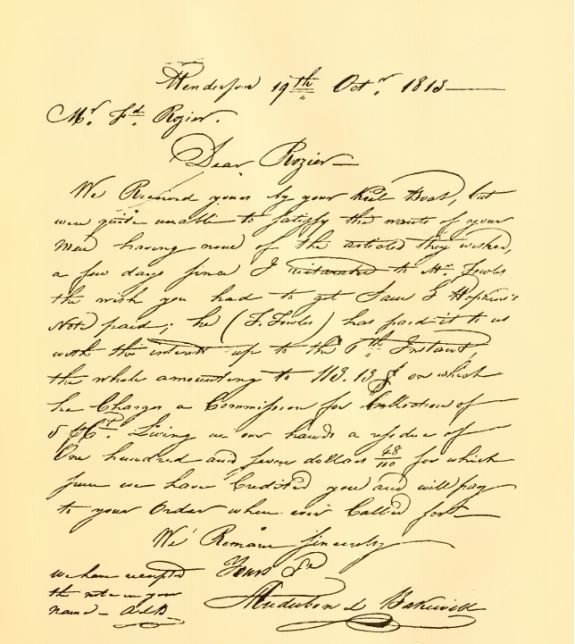 Henderson 19th Octr. 1813
Mr. Fd. Rozier.
Dear Rozier
We Received yours by your Keel Boat, but
were quite unable to satisfy the wants of your
Men having none of the articles they wished,
a few days since I to Mr. Fowler
the wish you had to get Saml Hopkins's
Note paid; he (F. Fowler) has paid it to us
with the interest up to the Instant,
the whole amounting to 113.13 on which
he Charges a Commission for Collection of
5 ⅌ Ct. Living in our hands a residue of
One hundred and seven dollars 48/100 for which
sum we have Credited you and will pay
to your Order when ever Called for
We Remain Sincerely
we have receipted Yours
the note in your Audubon & Bakewell
name - A&B